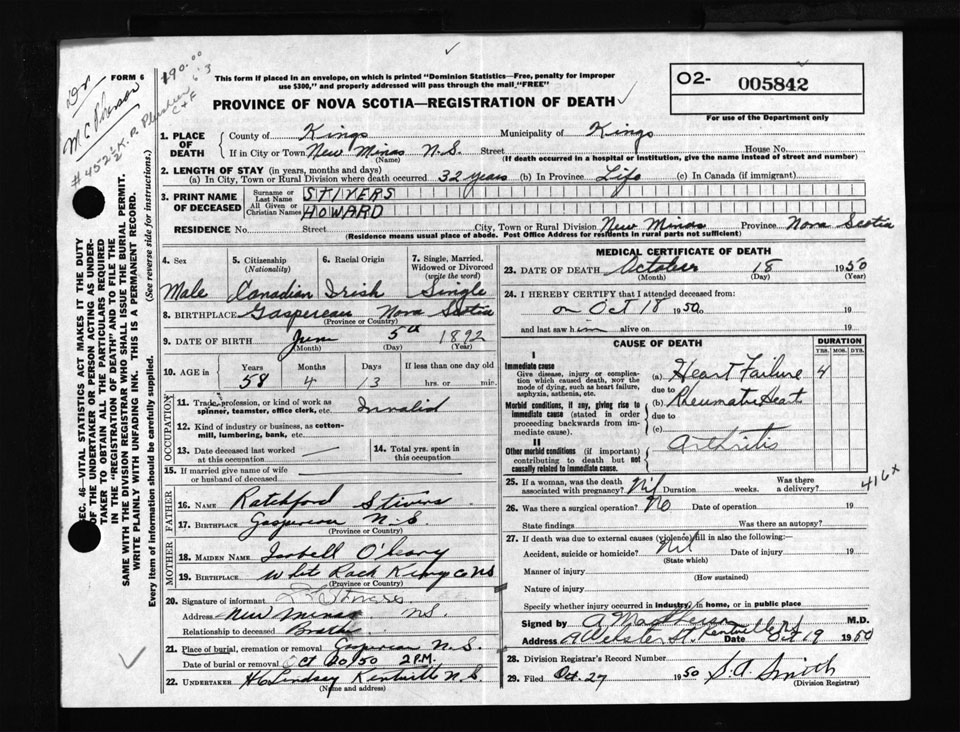 FORM 6
190.00
6 3
McPherson
# 452½ K. P.
C + F
This form if placed in an envelope, on which is printed "Dominion Statistics—Free, penalty for improper
use $300," and properly addressed will pass through the mail "FREE"
PROVINCE OF NOVA SCOTIA—REGISTRATION OF DEATH
O2- 005842
For use of the Department only
SEC. 46—VITAL STATISTICS ACT MAKES IT THE DUTY
OF THE UNDERTAKER OR PERSON ACTING AS UNDER-
TAKER TO OBTAIN ALL THE PARTICULARS REQUIRED
IN THE "REGISTRATION OF DEATH" AND TO FILE THE
SAME WITH THE DIVISION REGISTRAR WHO SHALL ISSUE THE BURIAL PERMIT.
WRITE PLAINLY WITH UNFADING INK. THIS IS A PERMANENT RECORD.
Every item of information should be carefully supplied. (See reverse side for instructions.)
1. PLACE OF DEATH
County of Kings Municipality of Kings
If in City or Town New Minas N.S. Street House No.
(Name) (If death occurred in a hospital or institution, give the name instead of street and number)
2. LENGTH OF STAY (in years, months and days)
(a) In City, Town or Rural Division where death occurred 32 years (b) In Province Life (c) In Canada (if immigrant)
3. PRINT NAME OF DECEASED
Surname or Last Name STIVERS
All Given or Christian Names HOWARD
RESIDENCE No. Street City, Town or Rural Division New Minas Province Nova Scotia
(Residence means usual place of abode. Post Office Address for residents in rural parts not sufficient)
4. Sex 5. Citizenship (Nationality) 6. Racial Origin 7. Single, Married, Widowed or Divorced (write the word)
Male Canadian Irish Single
8. BIRTHPLACE Gaspereau Nova Scotia
(Province or Country)
9. DATE OF BIRTH June 5th 1892
(Month) (Day) (Year)
10. AGE in Years Months Days If less than one day
58 4 13 hrs. or min.
OCCUPATION
11. Trade, profession, or kind of work as
spinner, teamster, office clerk, etc. Invalid
12. Kind of industry or business, as cotton-
mill, lumbering, bank, etc.
13. Date deceased last worked at this occupation
14. Total yrs. spent in this occupation
15. If married give name of wife
or husband of deceased
FATHER
16. NAME Ratchford Stivers
17. BIRTHPLACE Gaspereau N.S.
(Province or Country)
MOTHER
18. MAIDEN NAME Isabell O'Leary
19. BIRTHPLACE White Rock Kings Co NS
(Province or Country)
20. Signature of informant
Address New Minas NS.
Relationship to deceased Brother
21. Place of burial, cremation or removal Gaspereau N.S.
Date of burial or removal Oct 20/50 2 P.M.
22. UNDERTAKER H C Lindsay Kentville N.S.
(Name and address)
MEDICAL CERTIFICATE OF DEATH
23. DATE OF DEATH October 18 1950
(Month) (Day) (Year)
24. I HEREBY CERTIFY that I attended deceased from
on Oct 18 1950 19
and last saw him alive on 19
CAUSE OF DEATH DURATION
YRS. MOS. DYS.
I
Immediate cause
Give disease, injury or complica-
tion which caused death, NOT the
mode of dying, such as heart failure,
asphyxia, asthenia, etc.
(a) Heart Failure 4
due to
(b) Rheumatic Heart
due to
(c)
Morbid conditions, if any, giving rise to
immediate cause (stated in order
proceeding backwards from im-
mediate cause).
II
Other morbid conditions (if important)
contributing to death but not
causally related to immediate cause.
Arthritis
416x
25. If a woman, was the death
associated with pregnancy? Nil Duration weeks. Was there a delivery?
26. Was there a surgical operation? No Date of operation 19
State findings Was there an autopsy?
27. If death was due to external causes (violence) fill in also the following:
Accident, suicide or homicide? Nil Date of injury 19
(State which)
Manner of injury
(How sustained)
Nature of injury
Specify whether injury occurred in industry, in home, or in public place
Signed by M.D.
Address Webster St. Kentville NS Date Oct 19 1950
28. Division Registrar's Record Number
29. Filed Oct. 27 1950 S. A. Smith
(Division Registrar)